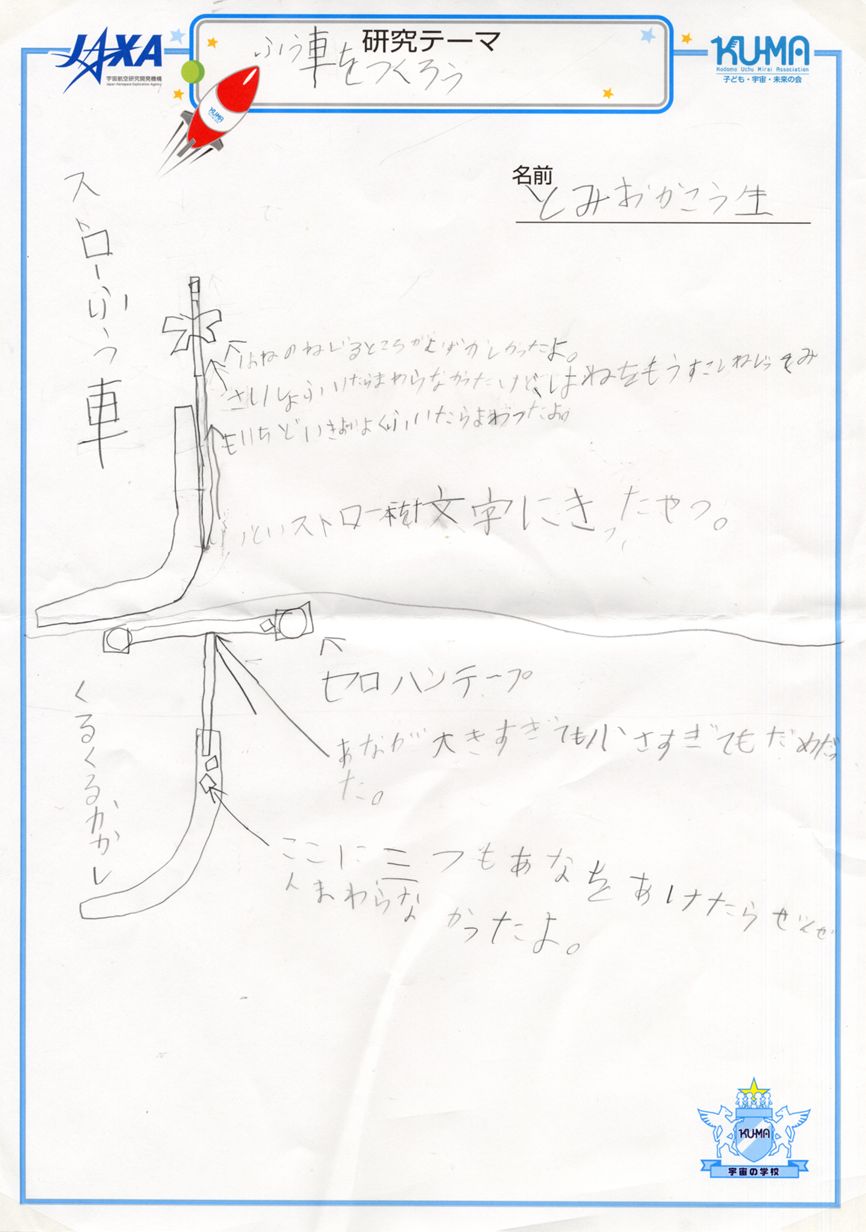 JAXA
宇宙航空研究開発機構
Japan Aerospace Exploration Agency
研究テーマ
ふう車をつくろう
KU-MA
Kodomo Uchu Mirai Association
子ども・宇宙・未来の会
KU-MA
名前
とみおかこう生
ストローふう車
はねのねじるところがむずかしかったよ。
さいしょふいたらまわらなかったけど、はねをもうすこしねじってみ
もいちどいきおよくふいたらまわったよ。
ふといストロー樹文字にきったやつ。
セロハンテープ
くるくるかかし
あなが大きすぎても小さすぎてもだめだっ
た。
ここに三つもあなをあけたらぜんぜ
んまわらなかったよ。
KU-MA
宇宙の学校